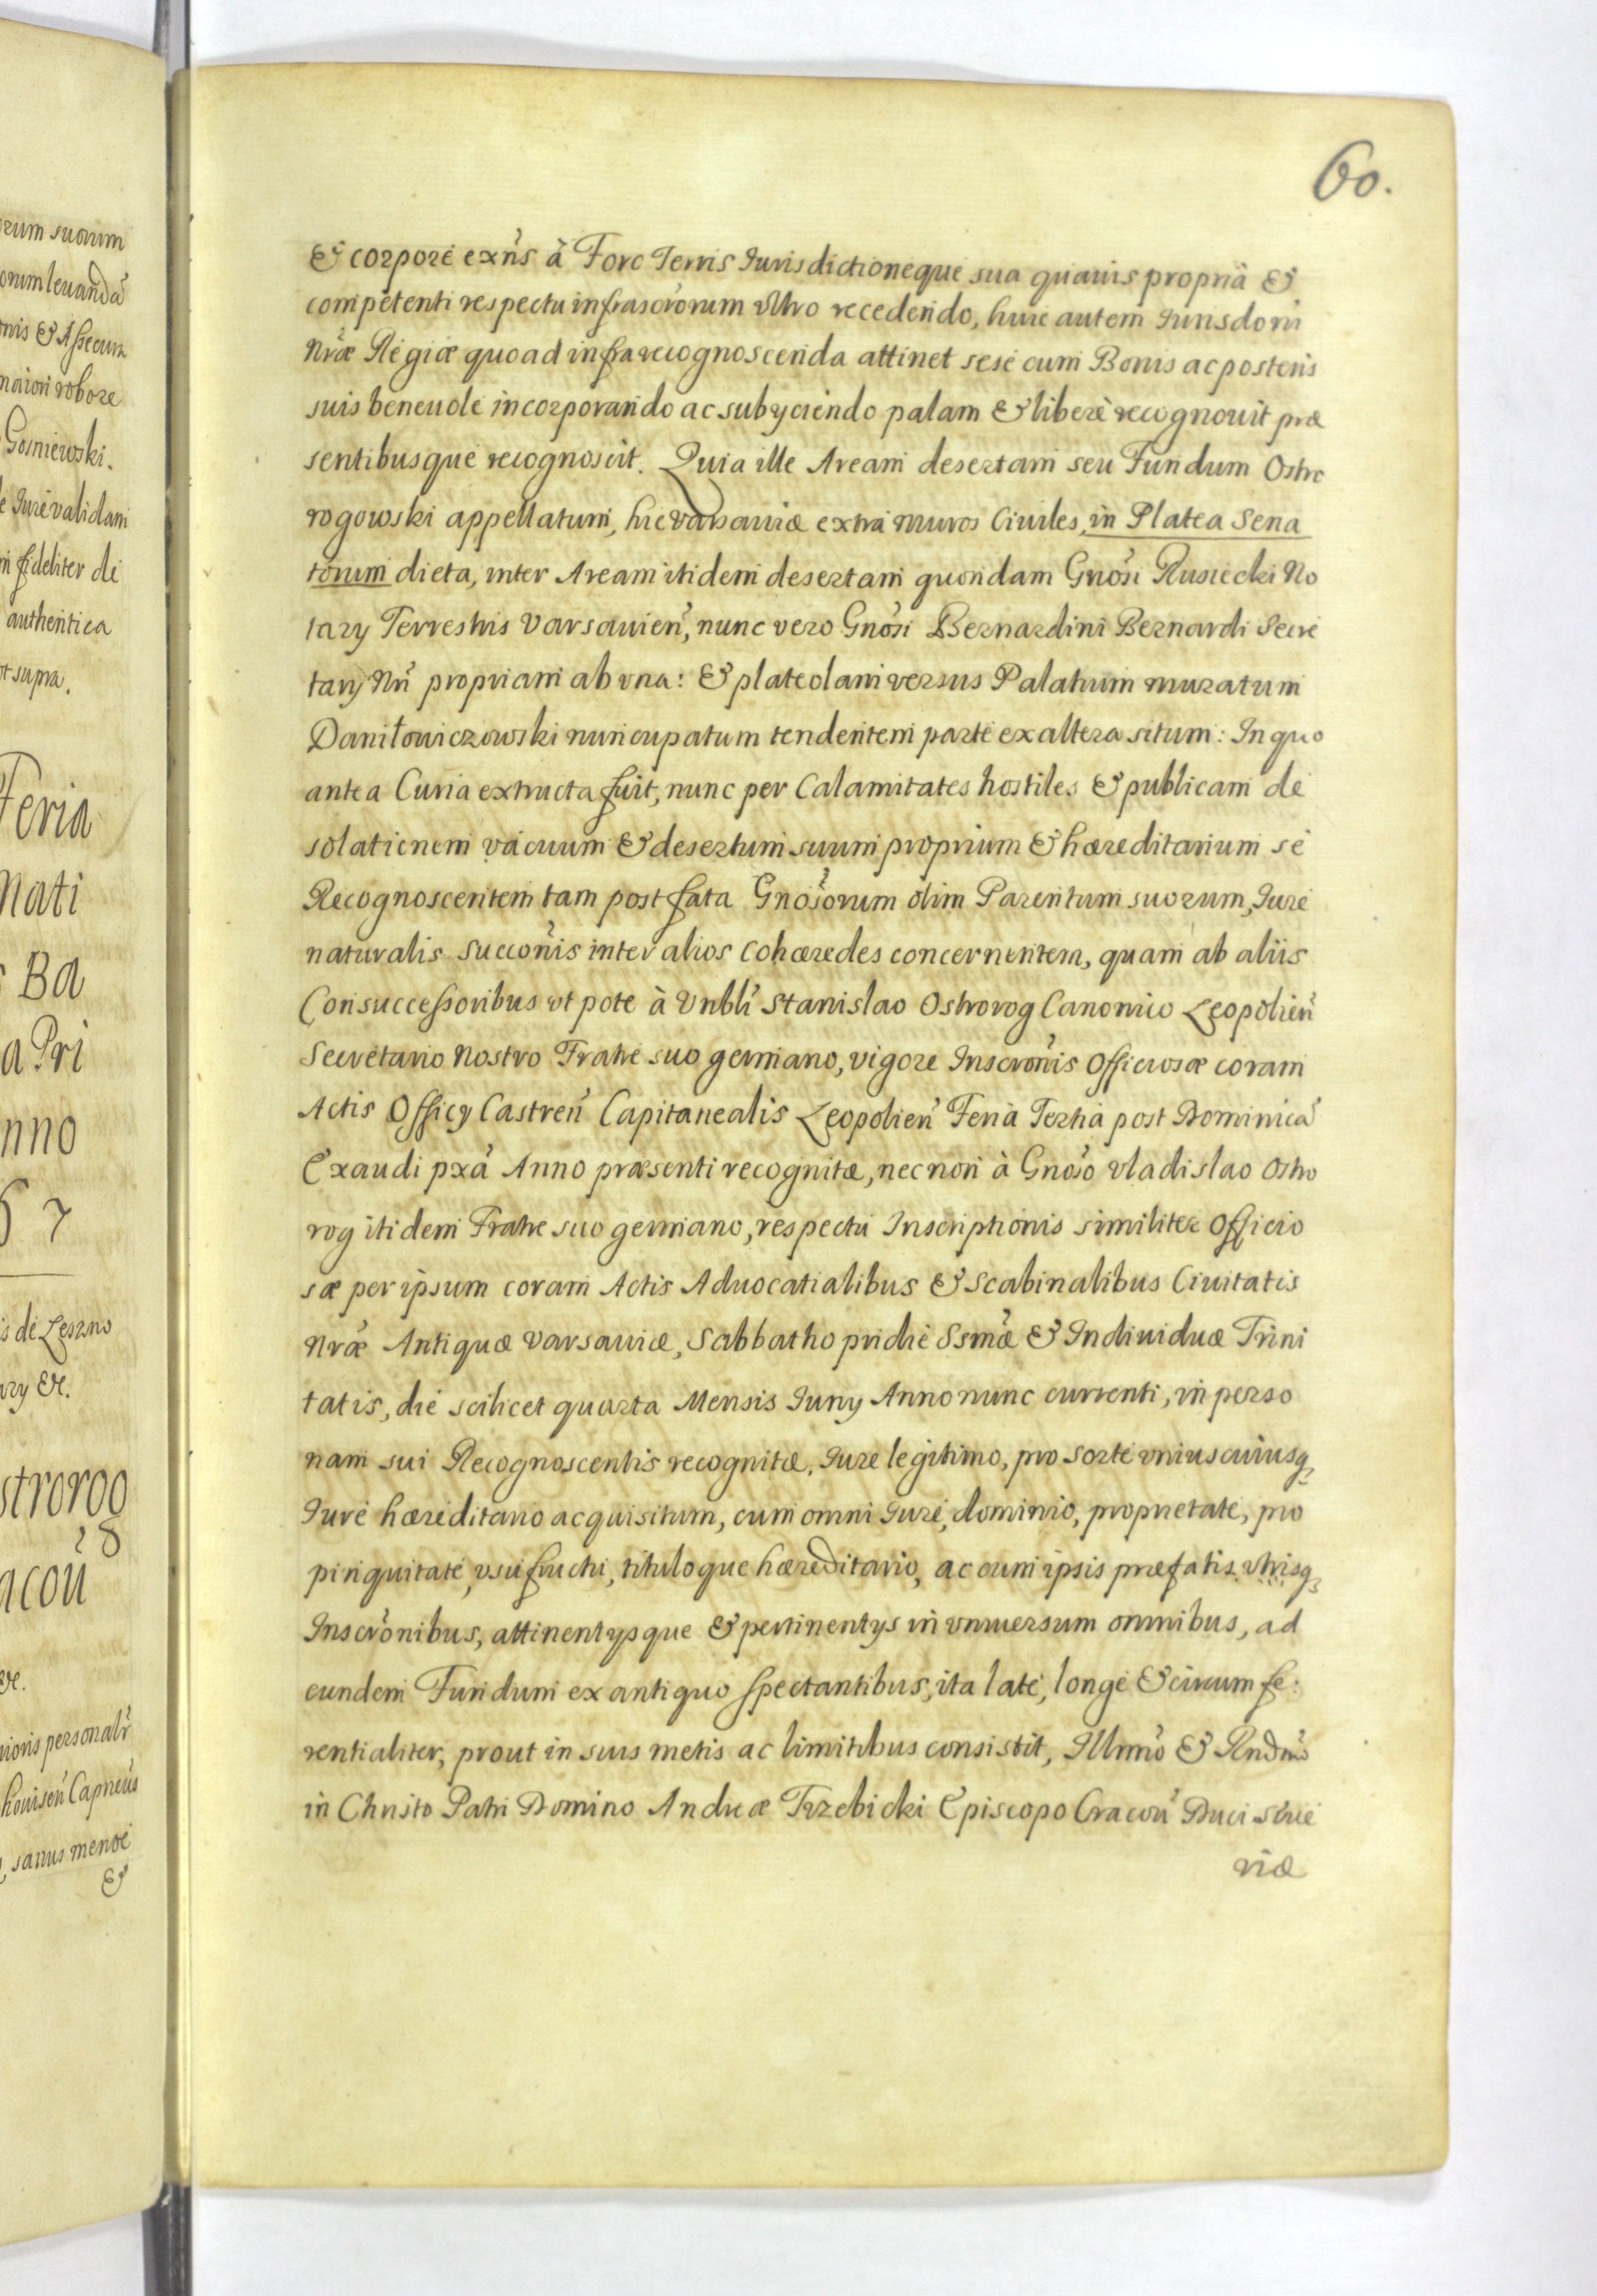 60.
& corpore exn̄s à Foro Terris Iurisdictioneque sua quauis propriâ &
competenti respectu infrascrõrum vltro recedendo, huic autem Iurisdoni
Nrãe Regiæ quoad infra recognoscenda attinet sese cum Bonis ac posteris
suis beneuole incorporando ac subyciendo palam & liberè recognouit præ
sentibusque recognoscit. Quia ille Aream desertam seu Fundum Ostro
rogowski appellatum, hic Varsauiæ extra muros Ciuiles, in Platea Sena
torum dicta, inter Aream itidem desertam quondam Gnõsi Rusiecki No
tary Terrestris Varsauien̄, nunc vero Gnõsi Bernardini Bernardi Secre
tary Nrĩ propriam ab vna: & plateolam versus Palatium muratum
Daniłowiczowski nuncupatum tendentem parte ex altera situm: In quo
antea Curia extructa fuit, nunc per Calamitates hostiles & publicam de
solationem vacuum & desertum suum proprium & hæreditarium se
Recognoscentem tam post fata Gnõsorum olim Parentum suorum, Iure
naturalis succõnis inter alios Cohæredes concernentem, quam ab aliis
Consuccessoribus vt pote à Vnbli Stanislao Ostrorog Canonico Leopolien̄
Secretario Nostro Fratre suo germano, vigore Inscrõnis Officiosæ coram
Actis Officy Castren̄ Capitanealis Leopolien̄ Feria Tertia post Dominicã
Exaudi pxã Anno præsenti recognitæ, nec non à Gnõso Vladislao Ostro
rog itidem Fratre suo germano, respectu Inscriptionis similiter Officio
sæ per ipsum coram Actis Aduocatialibus & Scabinalibus Ciuitatis
Nrãe Antiquæ Varsauiæ, Sabbatho pridie Ssmãe & Indiuiduæ Trini
tatis, die scilicet quarta Mensis Iuny Anno nunc currenti, in perso
nam sui Recognoscentis recognitæ, Iure legitimo, pro sorte vniuscuiusq;
Iure hæreditario acquisitum, cum omni Iure, dominio, proprietate, pro
pinquitate, vsufructu, tituloque hæreditario, ac cum ipsis præfatis vtrisq;
Inscrõnibus, attinentysque & pertinentys in vniuersum omnibus, ad
eundem Fundum ex antiquo spectantibus, ita late, longe & circumfe:
rentialiter, prout in suis metis ac limitibus consistit, Illmo & Rndmo
in Christo Patri Domino Andreæ Trzebicki Episcopo Cracoũ Duci Seue
riæ